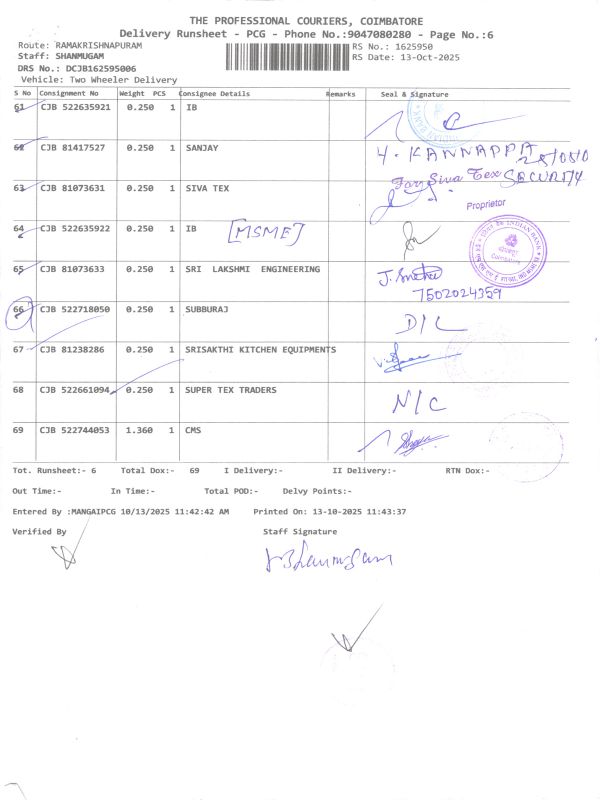 THE PROFESSIONAL COURIERS, COIMBATORE
Delivery Runsheet - PCG - Phone No.:9047080280 - Page No.:6
Route: RAMAKRISHNAPURAM RS No.: 1625950
Staff: SHANMUGAM RS Date: 13-Oct-2025
DRS No.: DCJB162595006
Vehicle: Two Wheeler Delivery
S No Consignment No Weight PCS Consignee Details Remarks Seal & Signature
61 CJB 522635921 0.250 1 IB
INDIAN BANK
62 CJB 81417527 0.250 1 SANJAY 4. KANNAPPA
SECURITY
63 CJB 81073631 0.250 1 SIVA TEX For Siva Tex
Proprietor
64 CJB 522635922 0.250 1 IB [MSME]
INDIAN BANK
65 CJB 81073633 0.250 1 SRI LAKSHMI ENGINEERING
7502024359
66 CJB 522718050 0.250 1 SUBBURAJ D/L
67 CJB 81238286 0.250 1 SRISAKTHI KITCHEN EQUIPMENTS
68 CJB 522661094 0.250 1 SUPER TEX TRADERS N/C
69 CJB 522744053 1.360 1 CMS
Tot. Runsheet:- 6 Total Dox:- 69 I Delivery:- II Delivery:- RTN Dox:-
Out Time:- In Time:- Total POD:- Delvy Points:-
Entered By :MANGAIPCG 10/13/2025 11:42:42 AM Printed On: 13-10-2025 11:43:37
Verified By Staff Signature